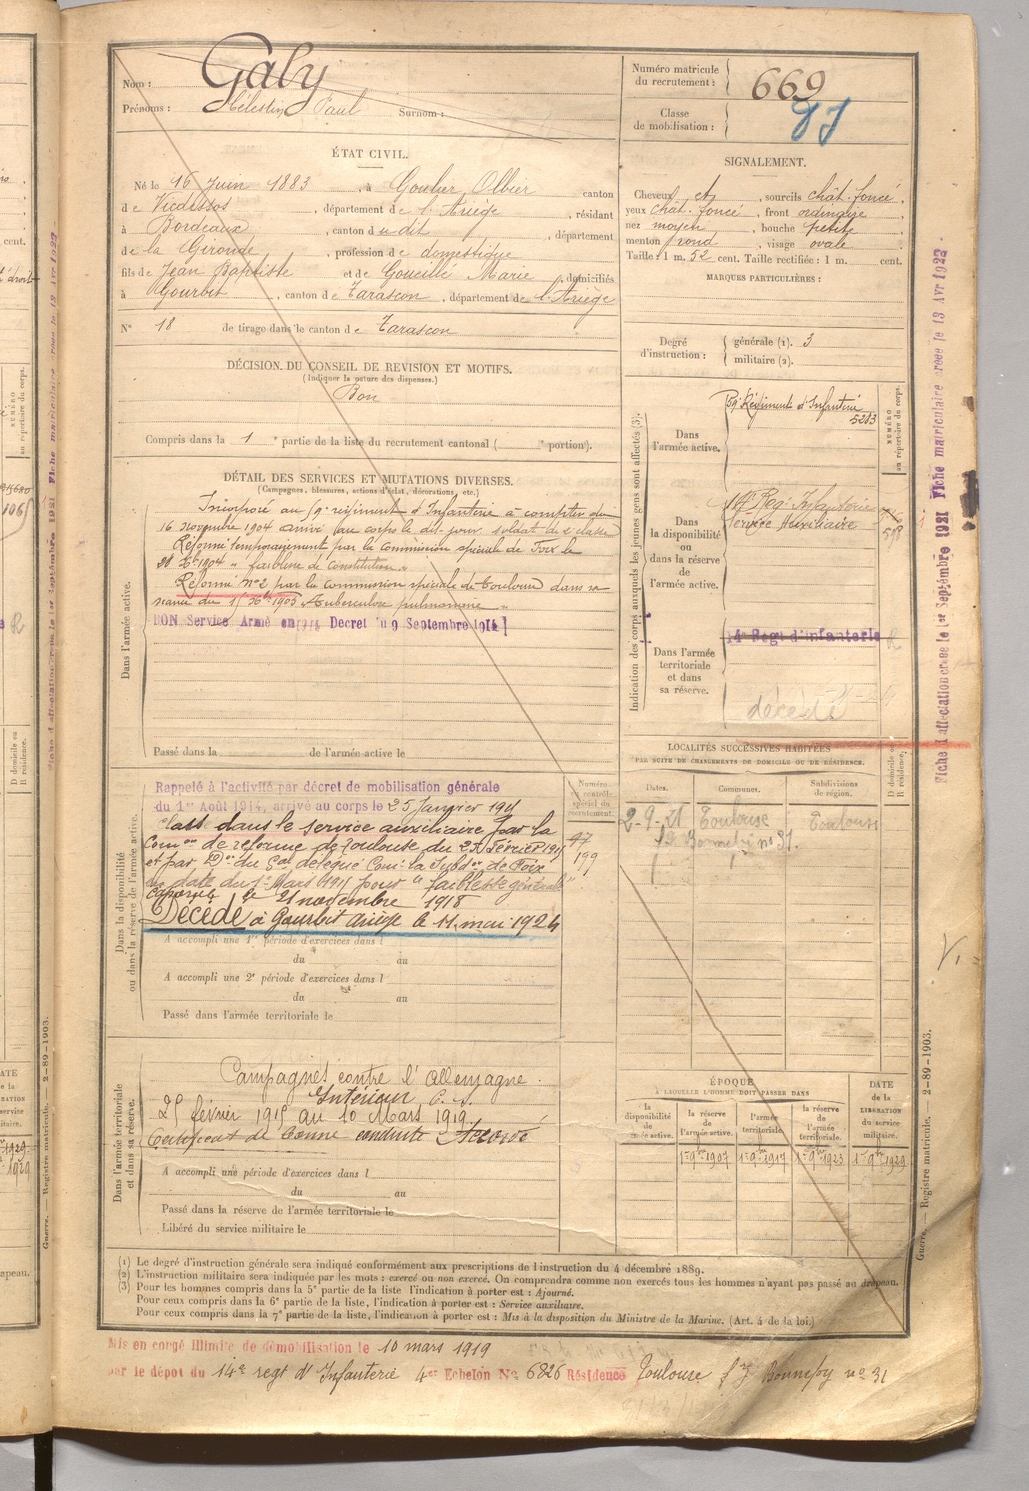 Nom : Galy
Prénoms : Célestin Paul Surnom :
Numéro matricule du recrutement : 669
Classe de mobilisation :
ÉTAT CIVIL.
Né le 16 Juin 1883, à Goulier Olbier canton
de Vicdessos, département de l'Ariège, résidant
à Bordeaux, canton du dit, département
de la Gironde, profession de domestique
fils de Jean Baptiste et de Goueille Marie, domiciliés
à Gourbit, canton de Tarascon, département de l'Ariège
N° 18 de tirage dans le canton de Tarascon
SIGNALEMENT.
Cheveux et, sourcils chât. foncé,
yeux chât. foncé, front ordinaire,
nez moyen, bouche petite,
menton rond, visage ovale
Taille : 1 m. 52 cent. Taille rectifiée : 1 m. cent.
MARQUES PARTICULIÈRES :
Degré d'instruction : générale (1). 3
militaire (2).
DÉCISION DU CONSEIL DE REVISION ET MOTIFS.
(Indiquer la nature des dispenses.)
Bon
Compris dans la 1e partie de la liste du recrutement cantonal ( e portion).
DÉTAIL DES SERVICES ET MUTATIONS DIVERSES.
(Campagnes, blessures, actions d'éclat, décorations, etc.)
Dans l'armée active.
Incorporé au régiment d'Infanterie à compter du
16 novembre 1904 arrivé au corps le dit jour soldat de 2e classe
Réformé temporairement par la commission spéciale de Foix le
1904 " faiblesse de Constitution "
Réformé n° 2 par la commission spéciale de Toulouse dans sa
séance du 1905 Tuberculose pulmonaire "
BON Service Armé en 1914 Decret du 9 Septembre 1914
Passé dans la de l'armée active le
Indication des corps auxquels les jeunes gens sont affectés (3).
NUMÉRO au répertoire du corps.
Dans l'armée active.
Régiment d'Infanterie
5203
Dans la disponibilité ou dans la réserve de l'armée active.
14e Rég. Infanterie
Service Auxiliaire
Dans l'armée territoriale et dans sa réserve.
14e Regt d'Infanterie
décédé
LOCALITÉS SUCCESSIVES HABITÉES
PAR SUITE DE CHANGEMENTS DE DOMICILE OU DE RÉSIDENCE.
Dates. Communes. Subdivisions de région. D domicile ou R résidence.
2-9-21 Toulouse Toulouse
n° 31.
Dans la disponibilité ou dans la réserve de l'armée active.
Numéro au contrôle spécial du recrutement.
Rappelé à l'activité par décret de mobilisation générale
du 1er Août 1914, arrivé au corps le 25 Janvier
Classé dans le service auxiliaire par la
Comon de réforme de Toulouse du Février
et par Don du Gal délégué Comt la Subdon de Foix
en date du 1er Mars pour " faiblesse générale "
caporal le 21 novembre 1918
Décédé à Gourbit Ariège le 11 mai 1924
A accompli une 1re période d'exercices dans l
du au
A accompli une 2e période d'exercices dans l
du au
Passé dans l'armée territoriale le
Dans l'armée territoriale et dans sa réserve.
Campagnes contre l'Allemagne.
Intérieur
25 février 1915 au 10 Mars 1919
Certificat de bonne conduite Accordé
A accompli une période d'exercices dans l
du au
Passé dans la réserve de l'armée territoriale le
Libéré du service militaire le
ÉPOQUE
À LAQUELLE L'HOMME DOIT PASSER DANS
la disponibilité de l'armée active. la réserve de l'armée active. l'armée territoriale. la réserve de l'armée territoriale.
DATE de la LIBÉRATION du service militaire.
1er 9bre 1907 1er 9bre 1917 1er 9bre 1923 1er 9bre 1929
(1) Le degré d'instruction générale sera indiqué conformément aux prescriptions de l'instruction du 4 décembre 1889.
(2) L'instruction militaire sera indiquée par les mots : exercé ou non exercé. On comprendra comme non exercés tous les hommes n'ayant pas passé au drapeau.
(3) Pour les hommes compris dans la 5e partie de la liste l'indication à porter est : Ajourné.
Pour ceux compris dans la 6e partie de la liste, l'indication à porter est : Service auxiliaire.
Pour ceux compris dans la 7e partie de la liste, l'indication à porter est : Mis à la disposition du Ministre de la Marine. (Art. 4 de la loi.)
Mis en congé illimité de démobilisation le 10 mars 1919
par le dépot du 14e regt d'Infanterie 4er Echelon N° 6826 Résidence Toulouse Bonnefoy n° 31
Guerre. — Registre matricule. — 2-89-1903.
Fiche d'affectation créée le 1er Septembre 1921 Fiche matriculaire créée le 13 Avr 1922